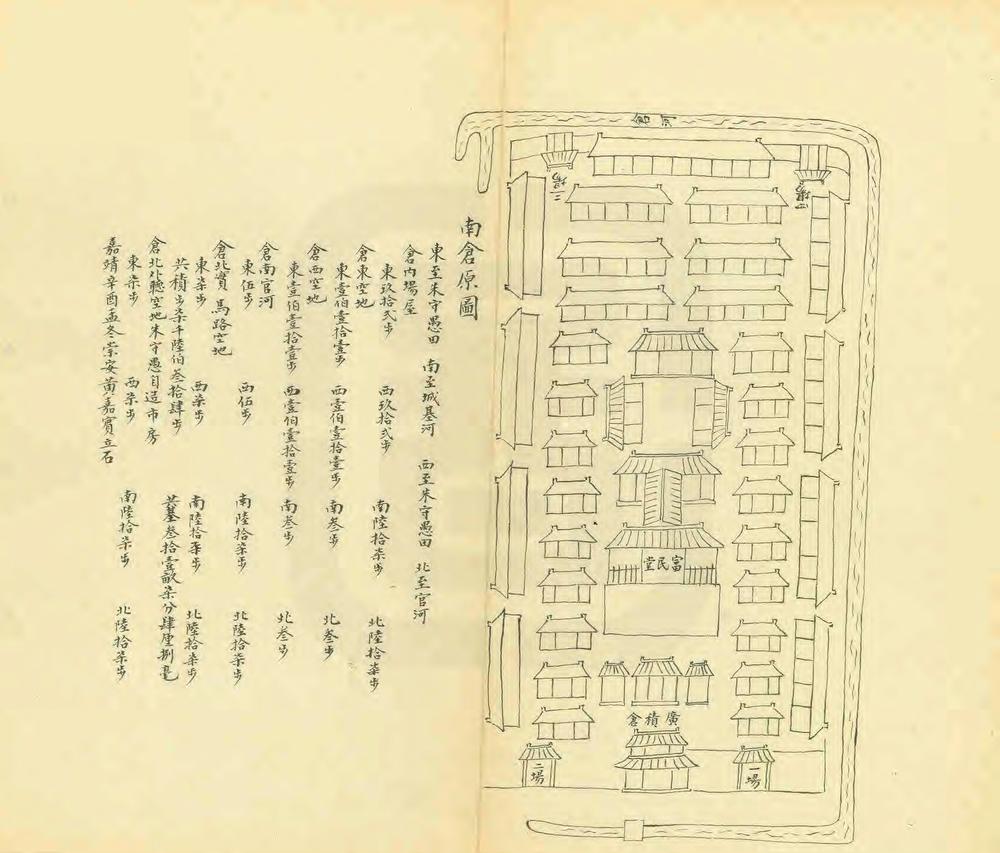 四場
三場
富民堂
廣積倉
一場
二場
南倉原圖
東至朱守愚田 南至城基河 西至朱守愚田 北至官河
倉内場屋
東玖拾弍步 西玖拾弍步 南陸拾柒步 北陸拾柒步
倉東空地
東壹伯壹拾壹步 西壹伯壹拾壹步 南叁步 北叁步
倉西空地
東壹伯壹拾壹步 西壹伯壹拾壹步 南叁步 北叁步
倉南官河
東伍步 西伍步 南陸拾柒步 北陸拾柒步
倉北實 馬路空地
東柒步 西柒步 南陸拾柒步 北陸拾柒步
共積步柒千陸伯叁拾肆步 共基叁拾壹畝柒分肆厘捌毫
倉北外聽空地朱守愚自造市房
東柒步 西柒步 南陸拾柒步 北陸拾柒步
嘉靖辛酉孟冬崇安黄嘉賓立石